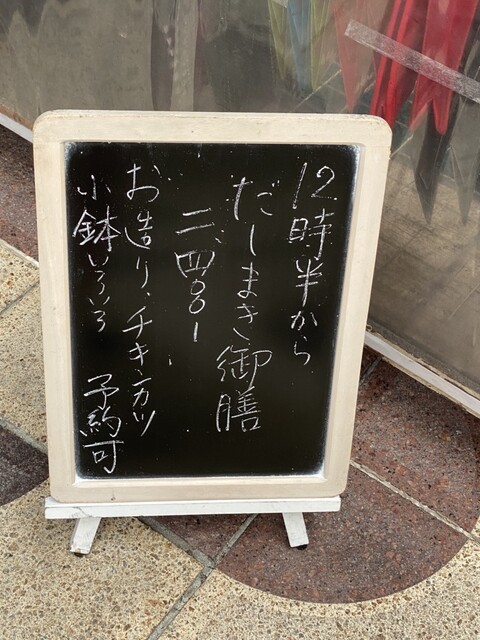 12時半から
だしまき御膳
二、四〇〇ー
お造り、チキンカツ
小鉢いろいろ
予約可